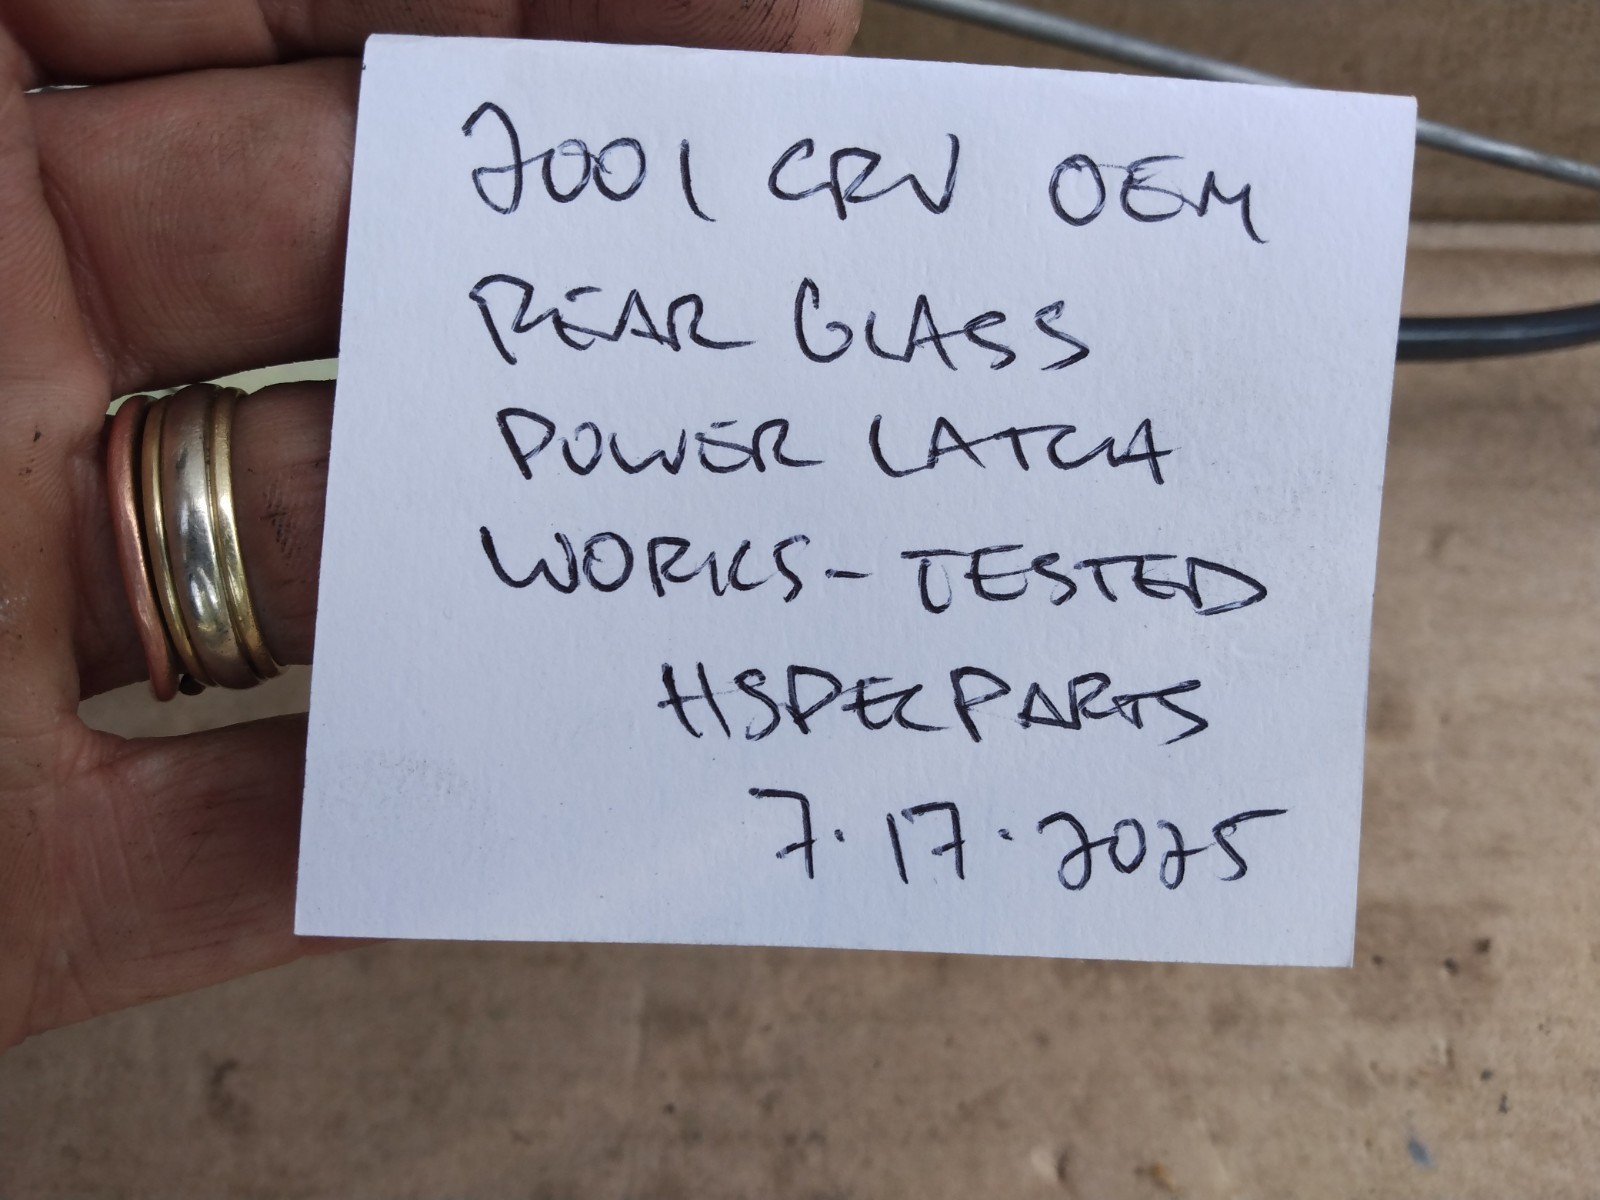 2001 CRV OEM
REAR GLASS
POWER LATCH
WORKS - TESTED
HSPECPARTS
7.17.2025